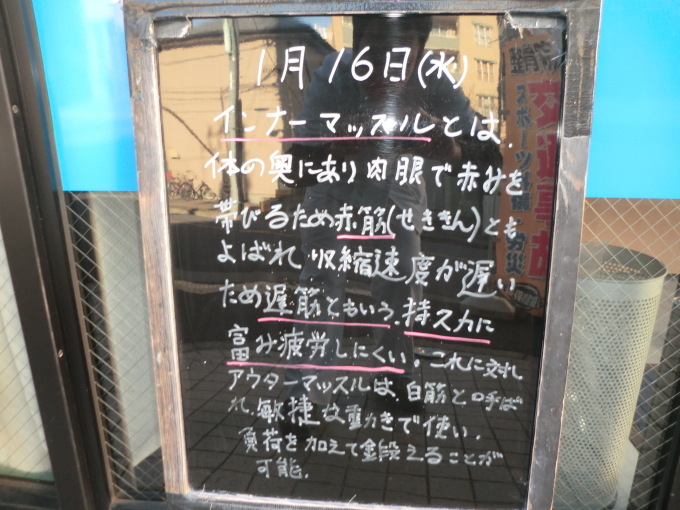 1月16日(水)
インナーマッスルとは、
体の奥にあり肉眼で赤みを
帯びるため赤筋(せききん)とも
よばれ、収縮速度が遅い
ため遅筋ともいう。持久力に
富み疲労しにくい。これに対し
アウターマッスルは、白筋と呼ば
れ、敏捷な動きで使い、
負荷を加えて鍛えることが
可能。
スポーツ
労災